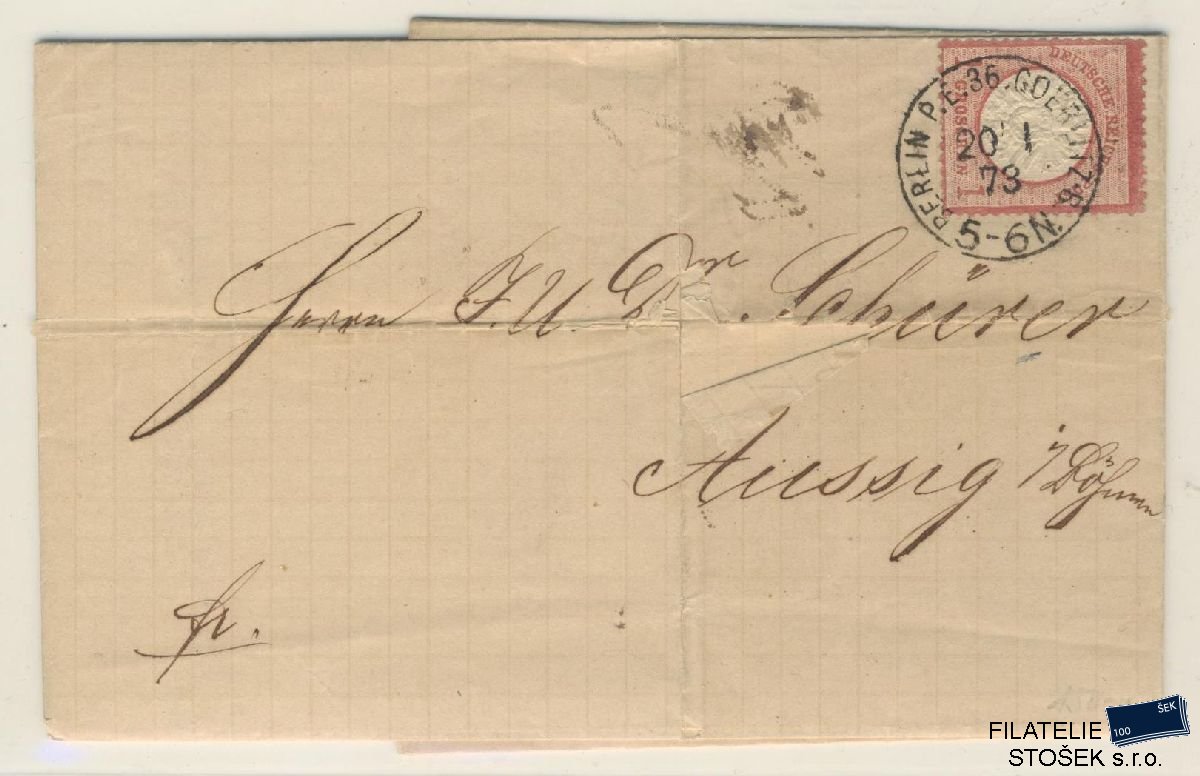 DEUTSCHE REICHS
GROSCHEN 1
BERLIN P.E.36.GOERLITZ.B.
20 1
73
5-6N.
Herrn J.U.Dr. Schürer
Aussig i/Böhmen
fr.
100 ŠEK
FILATELIE
STOŠEK s.r.o.